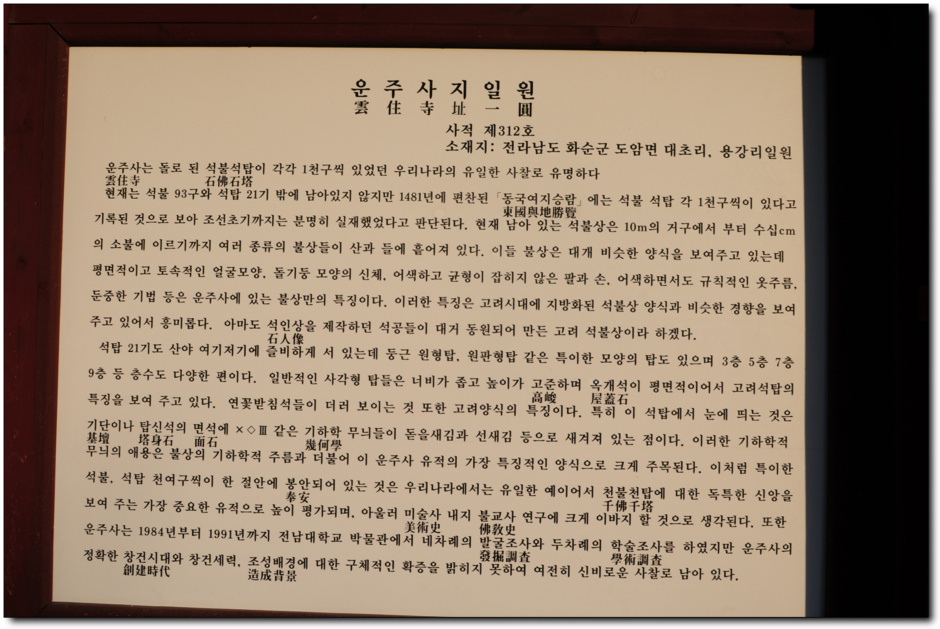 운주사지일원
雲住寺址一圓
사적 제312호
소재지: 전라남도 화순군 도암면 대초리, 용강리일원
운주사는 돌로 된 석불석탑이 각각 1천구씩 있었던 우리나라의 유일한 사찰로 유명하다
雲住寺 石佛石塔
현재는 석불 93구와 석탑 21기 밖에 남아있지 않지만 1481년에 편찬된 「동국여지승람」에는 석불 석탑 각 1천구씩이 있다고
東國與地勝覽
기록된 것으로 보아 조선초기까지는 분명히 실재했었다고 판단된다. 현재 남아 있는 석불상은 10m의 거구에서 부터 수십cm
의 소불에 이르기까지 여러 종류의 불상들이 산과 들에 흩어져 있다. 이들 불상은 대개 비슷한 양식을 보여주고 있는데
평면적이고 토속적인 얼굴모양, 돌기둥 모양의 신체, 어색하고 균형이 잡히지 않은 팔과 손, 어색하면서도 규칙적인 옷주름,
둔중한 기법 등은 운주사에 있는 불상만의 특징이다. 이러한 특징은 고려시대에 지방화된 석불상 양식과 비슷한 경향을 보여
주고 있어서 흥미롭다. 아마도 석인상을 제작하던 석공들이 대거 동원되어 만든 고려 석불상이라 하겠다.
石人像
석탑 21기도 산야 여기저기에 즐비하게 서 있는데 둥근 원형탑, 원판형탑 같은 특이한 모양의 탑도 있으며 3층 5층 7층
9층 등 층수도 다양한 편이다. 일반적인 사각형 탑들은 너비가 좁고 높이가 고준하며 옥개석이 평면적이어서 고려석탑의
高峻 屋蓋石
특징을 보여 주고 있다. 연꽃받침석들이 더러 보이는 것 또한 고려양식의 특징이다. 특히 이 석탑에서 눈에 띄는 것은
기단이나 탑신석의 면석에 ×◇Ⅲ 같은 기하학 무늬들이 돋을새김과 선새김 등으로 새겨져 있는 점이다. 이러한 기하학적
基壇 塔身石 面石 幾何學
무늬의 애용은 불상의 기하학적 주름과 더불어 이 운주사 유적의 가장 특징적인 양식으로 크게 주목된다. 이처럼 특이한
석불, 석탑 천여구씩이 한 절안에 봉안되어 있는 것은 우리나라에서는 유일한 예이어서 천불천탑에 대한 독특한 신앙을
奉安 千佛千塔
보여 주는 가장 중요한 유적으로 높이 평가되며, 아울러 미술사 내지 불교사 연구에 크게 이바지 할 것으로 생각된다. 또한
美術史 佛敎史
운주사는 1984년부터 1991년까지 전남대학교 박물관에서 네차례의 발굴조사와 두차례의 학술조사를 하였지만 운주사의
發掘調査 學術調査
정확한 창건시대와 창건세력, 조성배경에 대한 구체적인 확증을 밝히지 못하여 여전히 신비로운 사찰로 남아 있다.
創建時代 造成背景